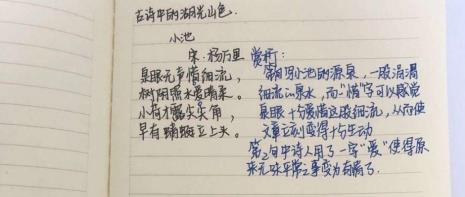 古诗中的湖光山色.
小池
宋·杨万里 赏析:
泉眼无声惜细流，
树阴照水爱晴柔。
小荷才露尖尖角，
早有蜻蜓立上头。
第1句写小池的源泉，一股涓涓
细流的泉水，而“惜”字可以感觉
泉眼十分爱惜这股细流，从而使
文章立刻变得十分生动
第2句中诗人用了一字“爱”使得原
来无味平常之事变为有情了.